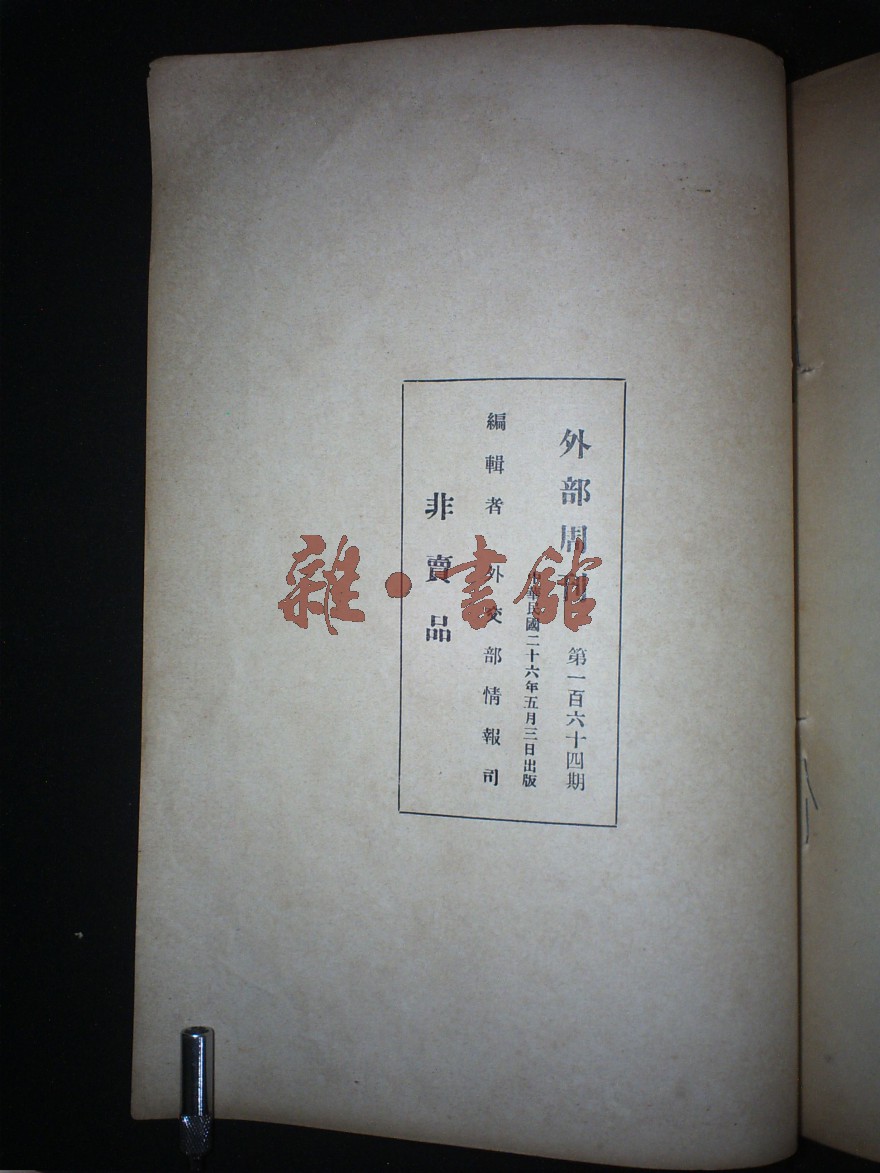 外部周刊 第一百六十四期
中華民國二十六年五月三日出版
編輯者 外交部情報司
非賣品
雜·書館